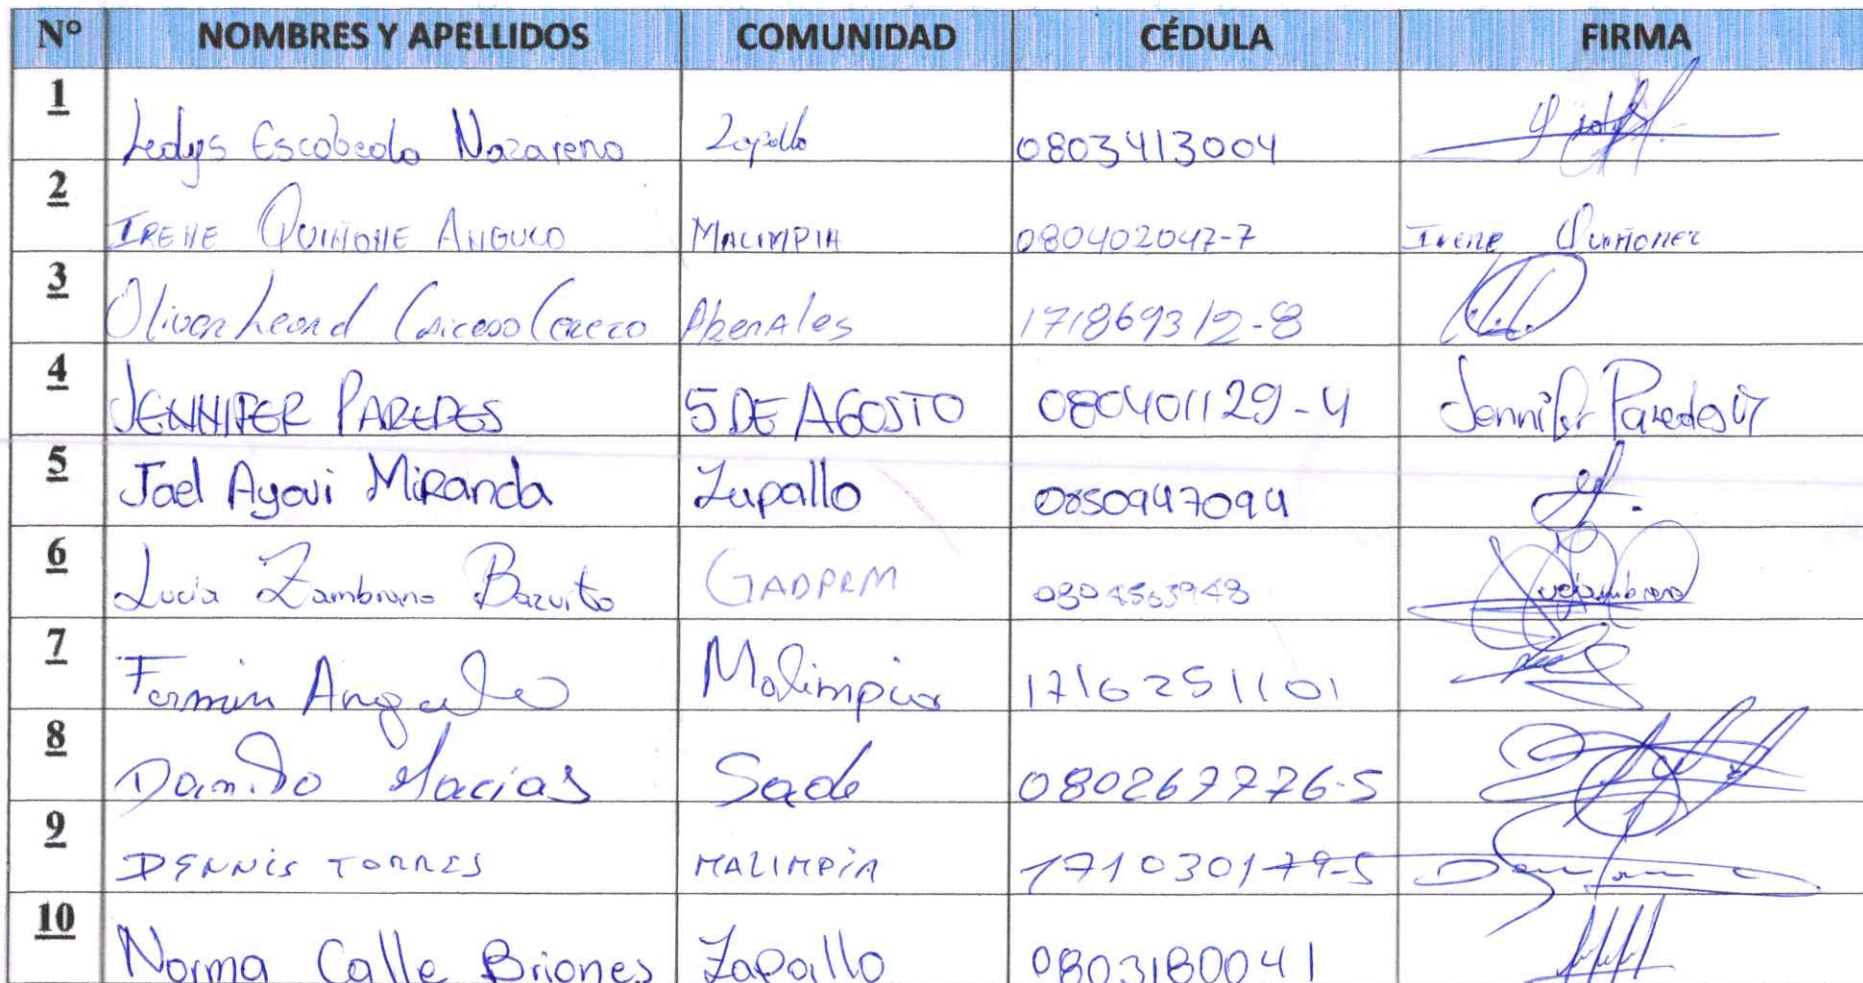 N° NOMBRES Y APELLIDOS COMUNIDAD CÉDULA FIRMA
1 Ledys Escobedo Nazareno Zapallo 0803413004
2 IRENE QUIÑONE ANGULO MALIMPIA 080402047-7 Irene Quiñonez
3 Oliver Leond Caicedo Arenales 171869312-8
4 JENNIFER PAREDES 5 DE AGOSTO 080401129-4 Jennifer Paredes
5 Jael Ayovi MiRanda Zapallo 0850947094
6 Lucia Zambrano GADPRM
7 Fermin Angulo Malimpia 1716251101
8 Danilo Macias Sade 080267776-5
9 DENNIS TORRES MALIMPIA 171030179-5
10 Norma Calle Briones Zapallo 0803180041